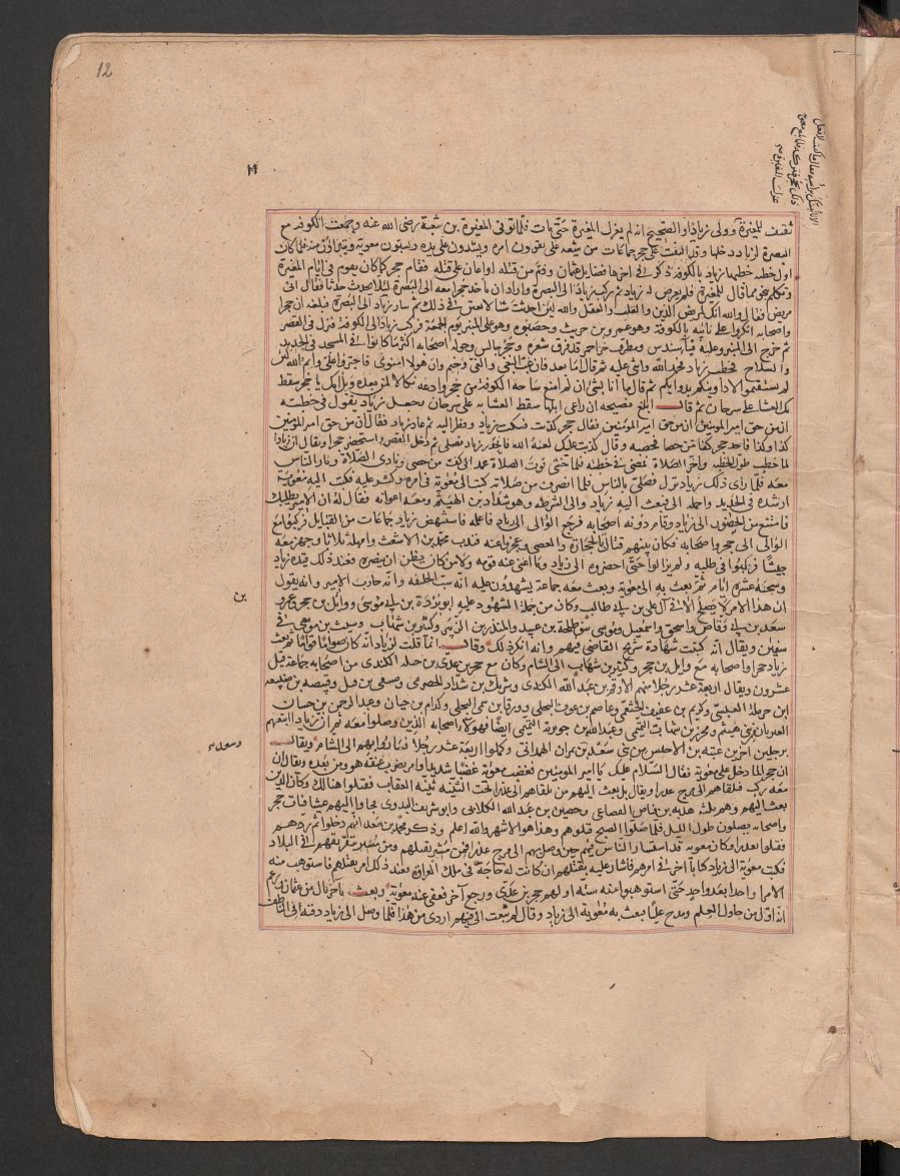 12
ثقيف للمغيرة وولى زيادا والصحيح انه لم يعزل المغيرة حتى مات فلما توفى المغيرة بن شعبة رضى الله عنه وجمعت الكوفة مع
البصرة لزياد دخلها وقد التفت على حجر جماعات من شيعة على يقوون امره ويشدون على يده ويسبون معوية ويتبرأون منه فلما كان
اول خطبة خطبها زياد بالكوفة ذكر فى اخرها فضايل عثمان وذم من قتله او اعان على قتله فقام حجر كما كان يقوم فى ايام المغيرة
وتكلم بنحو مما قال للمغيرة فلم يعرض له زياد ثم ركب زياد الى البصرة واراد ان ياخذ حجرا معه الى البصرة لئلا يحدث حدثا فقال انى
مريض فقال والله انك لمريض الدين والقلب والعقل والله لئن احدثت شيا لاسعين فى ذلك ثم سار زياد الى البصرة فبلغه ان حجرا
واصحابه انكروا على نائبه بالكوفة وهو عمرو بن حريث وحصبوه وهو على المنبر يوم الجمعة فركب زياد الى الكوفة فنزل فى القصر
ثم خرج الى المنبر وعليه قبا سندس ومطرف خز احمر قد فرق شعره وحجر جالس وحوله اصحابه اكثر ما كانوا فى المسجد فى الحديد
والسلاح فخطب زياد فحمد الله واثنى عليه ثم قال اما بعد فان غب البغى والغى وخيم وان هولا امنونى فاجترؤا على وايم الله لئن
لم تستقيموا لاداوينكم بدوايكم ثم قال ما انا بشئ ان لم امنع ساحة الكوفة من حجر وادعه نكالا لمن بعده ويل امك يا حجر سقط
بك العشا على سرحان ثم قال ابلغ نصيحة ان راعى ابلها سقط العشا به على سرحان وجعل زياد يقول فى خطبته
ان من حق امير المومنين ان من حق امير المومنين فقال حجر كذبت فسكت زياد ونظر اليه ثم عاد زياد فقال ان من حق امير المومنين
كذا وكذا فاخذ حجر كفا من حصا فحصبه وقال كذبت عليك لعنة الله فانحدر زياد فصلى ثم دخل القصر واستحضر حجرا ويقال ان زيادا
لما خطب طول الخطبة واخر الصلاة فمضى فى خطبته فلما خشى فوت الصلاة عمد الى كف من حصى ونادى الصلاة وثار الناس
معه فلما راى ذلك زياد نزل فصلى بالناس فلما انصرف من صلاته كتب الى معوية فى امره وكثر عليه فكتب اليه معوية
ان شده فى الحديد واحمله الى فبعث اليه زياد والى الشرطة وهو شداد بن الهيثم ومعه اعوانه فقال له ان الامير يطلبك
فامتنع من الحضور الى زياد وقام دونه اصحابه فرجع الوالى الى زياد فاعلمه فاستنهض زياد جماعات من القبايل فركبوا مع
الوالى الى حجر واصحابه فكان بينهم قتال بالحجارة والعصى وعجزوا عنه فندب محمد بن الاشعث وامهله ثلاثا وجهز معه
جيشا فركبوا فى طلبه ولم يزالوا حتى احضروه الى زياد وما اغنى عنه قومه ولا من كان يظن ان ينصره فعند ذلك قيده زياد
وسجنه عشرة ايام ثم بعث به الى معوية وبعث معه جماعة يشهدون عليه انه سب الخليفة وانه حارب الامير وانه يقول
ان هذا الامر لا يصلح الا فى آل على بن ابى طالب وكان من جملة الشهود عليه ابو بردة بن ابى موسى ووايل بن حجر وعمر
بن
سعد بن ابى وقاص واسحق واسمعيل وموسى بنو طلحة بن عبيد والمنذر بن الزبير وكثير بن شهاب وشبث بن ربعى فى
سبعين ويقال انه كتبت شهادة شريح القاضى فيهم وانه انكر ذلك وقال انما قلت لزياد انه كان صواما قواما ثم بعث
زياد حجرا واصحابه مع وايل بن حجر وكثير بن شهاب الى الشام وكان مع حجر بن عدى بن جبلة الكندى من اصحابه جماعة قيل
عشرون ويقال اربعة عشر رجلا منهم الارقم بن عبد الله الكندى وشريك بن شداد الحضرمى وصيفى بن فسيل وقبيصة بن ضبيعة
ابن حرملة العبسى وكريم بن عفيف الخثعمى وعاصم بن عوف البجلى وورقا بن سمى البجلى وكدام بن حيان وعبد الرحمن بن حسان
العريان من بنى هنيم ومحرز بن شهاب التميمى وعبد الله بن جوية التميمى ايضا فهولا اصحابه الذين وصلوا معه ثم ان زيادا اتبعهم
برجلين اخرين عتبة بن الاخنس من بنى سعد بن نمران الهدانى وكملوا اربعة عشر رجلا فساروا بهم الى الشام ويقال
ان حجرا لما دخل على معوية فقال السلام عليك يا امير المومنين فغضب معوية غضبا شديدا وامر بضرب عنقه هو ومن بعده ويقال ان
معه ركب فتلقاهم الى مرج عذرا ويقال بل بعث اليهم من تلقاهم الى عذرا تحت الثنية ثنية العقاب فقتلوا هنالك وكان الذين
بعث اليهم وهم ثلثة هدبة بن فياض القضاعى وحصين بن عبد الله الكلابى وابو شريف البدوى فجاوا اليهم عشا فبات حجر
واصحابه يصلون طول الليل فلما صلوا الصبح قتلوهم وهذا هو الاشهر والله اعلم وذكر محمد بن سعد انهم دخلوا ثم ردهم
فقتلوا بعذرا وكان معوية قد استشار الناس فيهم حين وصل بهم الى مرج عذرا فمن مشير بقتلهم ومن مشير بتفريقهم فى البلاد
فكتب معوية الى زياد كتابا آخر فى امرهم فاشار عليه بقتلهم ان كانت له حاجة فى ملك العراق فعند ذلك امر بقتلهم فاستوهب منه
الامرا واحدا بعد واحد حتى استوهبوا منه ستة اولهم حجر بن عدى ورجع آخر فعفى عنه معوية وبعث بآخر نال من عثمان وزعم
انه اول من جاور الظلم ومدح عليا فبعث به معوية الى زياد وقال لم تبعث الى فيهم اردى من هذا فلما وصل الى زياد دفنه الى الناطف